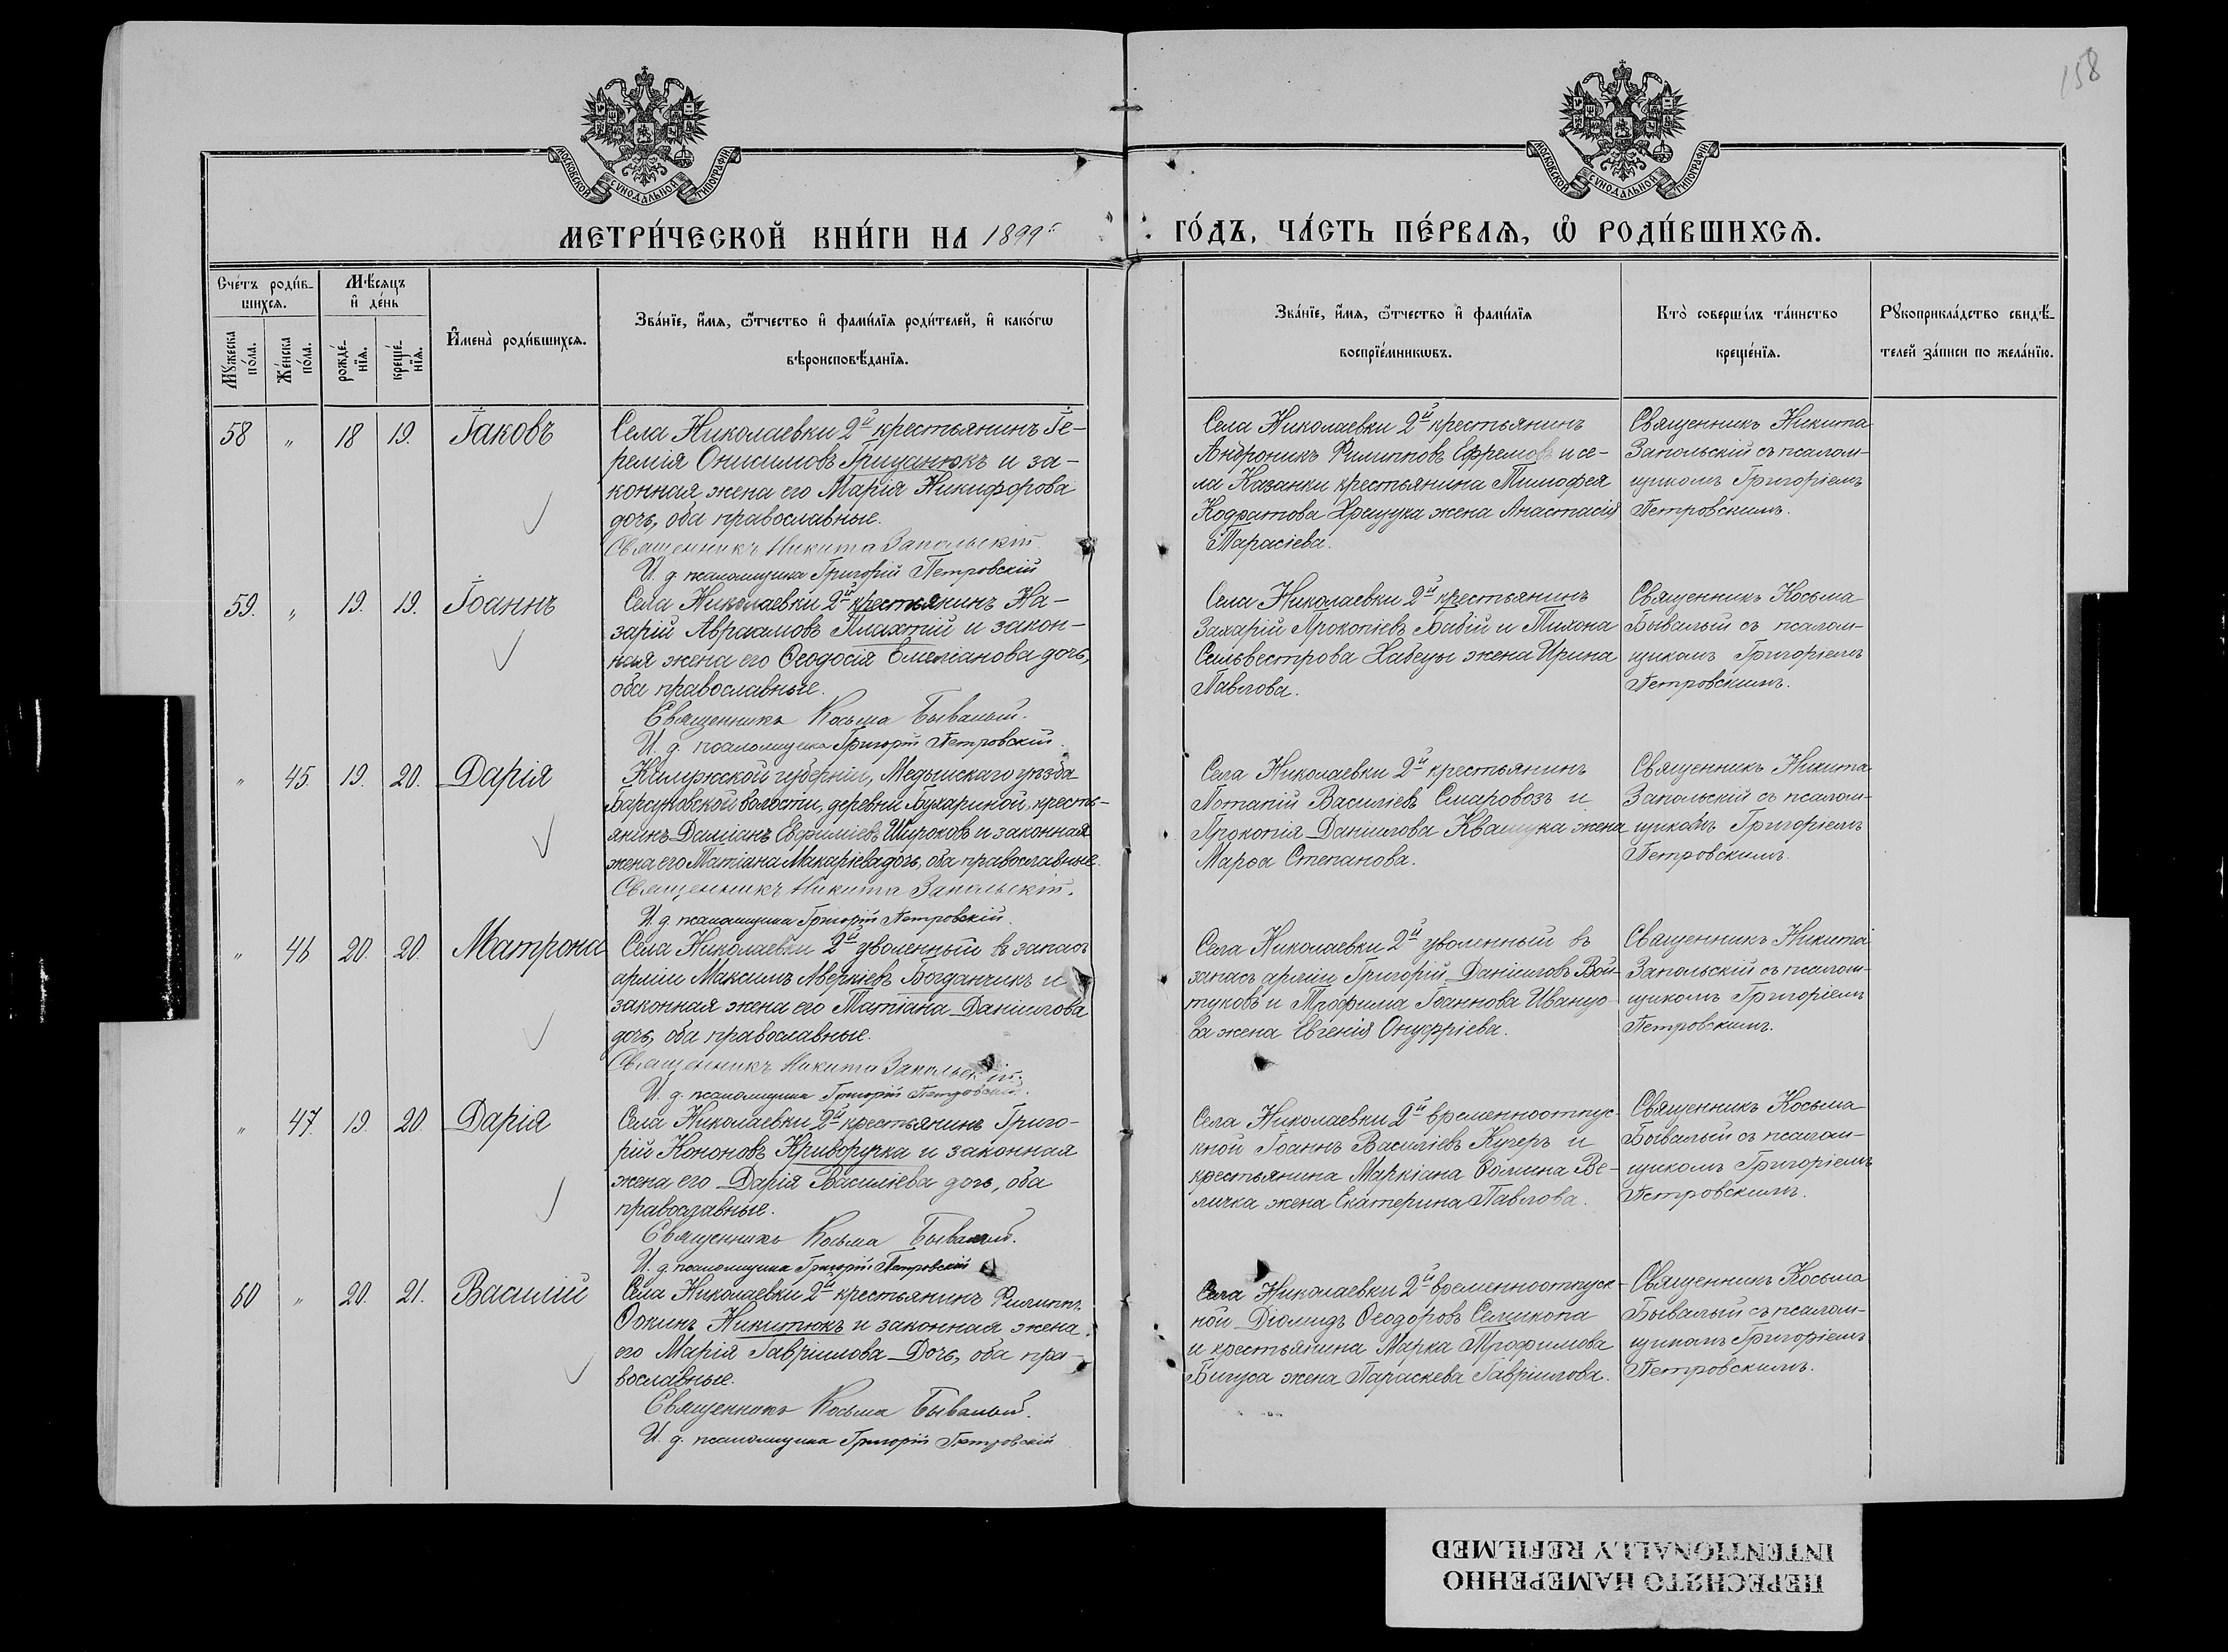 158
МОСКОВСКОЙ СѴНОДАЛЬНОЙ ТИПОГРАФІИ
МОСКОВСКОЙ СѴНОДАЛЬНОЙ ТИПОГРАФІИ
МЕТРИ́ЧЕСКОЙ КНИ́ГИ НА 1899й
ГО́ДЪ, ЧА́СТЬ ПЕ́РВАѦ, Ѡ҆ РОДИ́ВШИХСѦ.
Сче́тъ роди́в-
шихсѧ.
Мѣ́сѧцъ
и҆ де́нь
Мꙋ́жеска
по́ла.
Же́нска
по́ла.
рожде́-
нїѧ.
креще́-
нїѧ.
И҆мена̀ роди́вшихсѧ.
Зва́нїе, и҆́мѧ, ѻ҆́тчество и҆ фами́лїѧ роди́телей, и҆ како́гѡ
вѣроисповѣ́данїѧ.
Зва́нїе, и҆́мѧ, ѻ҆́тчество и҆ фами́лїѧ
воспрїе́мникѡвъ.
Кто̀ соверши́лъ та́инство
креще́нїѧ.
Рꙋкоприкла́дство свидѣ́-
телей за́писи по жела́нїю.
58 " 18 19. Іаковъ
Села Николаевки 2й крестьянинъ Іе-
ремія Онисимовъ Грицанюкъ и за-
конная жена его Марія Никифорова
дочь, оба православные.
Священникъ Никита Запольскій.
И. д. псаломщика Григорій Петровскій
Села Николаевки 2й крестьянинъ
Андроникъ Филипповъ Ефремовъ и се-
ла Казанки крестьянина Тимофея
Кодратова жена Анастасія
Тарасіева.
Священникъ Никита
Запольскій съ псалом-
щикомъ Григоріемъ
Петровскимъ.
59. " 19. 19. Іоаннъ
Села Николаевки 2й крестьянинъ На-
зарій Авраамовъ Плахтій и закон-
ная жена его Ѳеодосія Емеліанова дочь,
оба православные.
Священникъ Косьма Бывалый.
И. д. псаломщика Григорій Петровскій.
Села Николаевки 2й крестьянинъ
Захарій Прокопіевъ Бабій и Тихона
Сильвестрова Хабецы жена Ирина
Павлова.
Священникъ Косьма
Бывалый съ псалом-
щикомъ Григоріемъ
Петровскимъ.
" 45. 19. 20. Дарія
Калужской губерніи, Медынскаго уѣзда
Барсуковской волости, деревни Бухариной, кресть-
янинъ Даміанъ Евфиміевъ Широковъ и законная
жена его Татіана Макаріева дочь, оба православные.
Священникъ Никита Запольскій.
И. д. псаломщика Григорій Петровскій.
Села Николаевки 2й крестьянинъ
Потапій Василіевъ Смаровозъ и
Прокопія Даніилова Квашука жена
Марѳа Степанова.
Священникъ Никита
Запольскій съ псалом-
щикомъ Григоріемъ
Петровскимъ.
" 46 20. 20. Матрона
Села Николаевки 2й уволенный въ запасъ
арміи Максимъ Аверкіевъ Богданчикъ и
законная жена его Татіана Даніилова
дочь, оба православные.
Священникъ Никита Запольскій.
И. д. псаломщика Григорій Петровскій.
Села Николаевки 2й уволенный въ
запасъ арміи Григорій Даніиловъ Вой-
туковъ и Трофима Іоаннова Иванцо-
ва жена Евгенія Онуфріева.
Священникъ Никита
Запольскій съ псалом-
щикомъ Григоріемъ
Петровскимъ.
" 47. 19. 20. Дарія
Села Николаевки 2й крестьянинъ Григо-
рій Кононовъ Криворучка и законная
жена его Дарія Василіева дочь, оба
православные.
Священникъ Косьма Бывалый.
И. д. псаломщика Григорій Петровскій
Села Николаевки 2й временноотпус-
кной Іоаннъ Василіевъ Кучеръ и
крестьянина Маркіана Ѳомина Ве-
личка жена Екатерина Павлова.
Священникъ Косьма
Бывалый съ псалом-
щикомъ Григоріемъ
Петровскимъ.
60 " 20. 21. Василій
Села Николаевки 2й крестьянинъ Филиппъ
Ѳокинъ Никитюкъ и законная жена
его Марія Гавріилова Дочь, оба пра-
вославные.
Священникъ Косьма Бывалый.
И. д. псаломщика Григорій Петровскій
Села Николаевки 2й временноотпуск-
ной Діомидъ Ѳеодоровъ Селикопа
и крестьянина Марка Трофимова
Бигуса жена Параскева Гавріилова.
Священникъ Косьма
Бывалый съ псалом-
щикомъ Григоріемъ
Петровскимъ.
ПЕРЕСНЯТО НАМЕРЕННО
INTENTIONALLY REFILMED